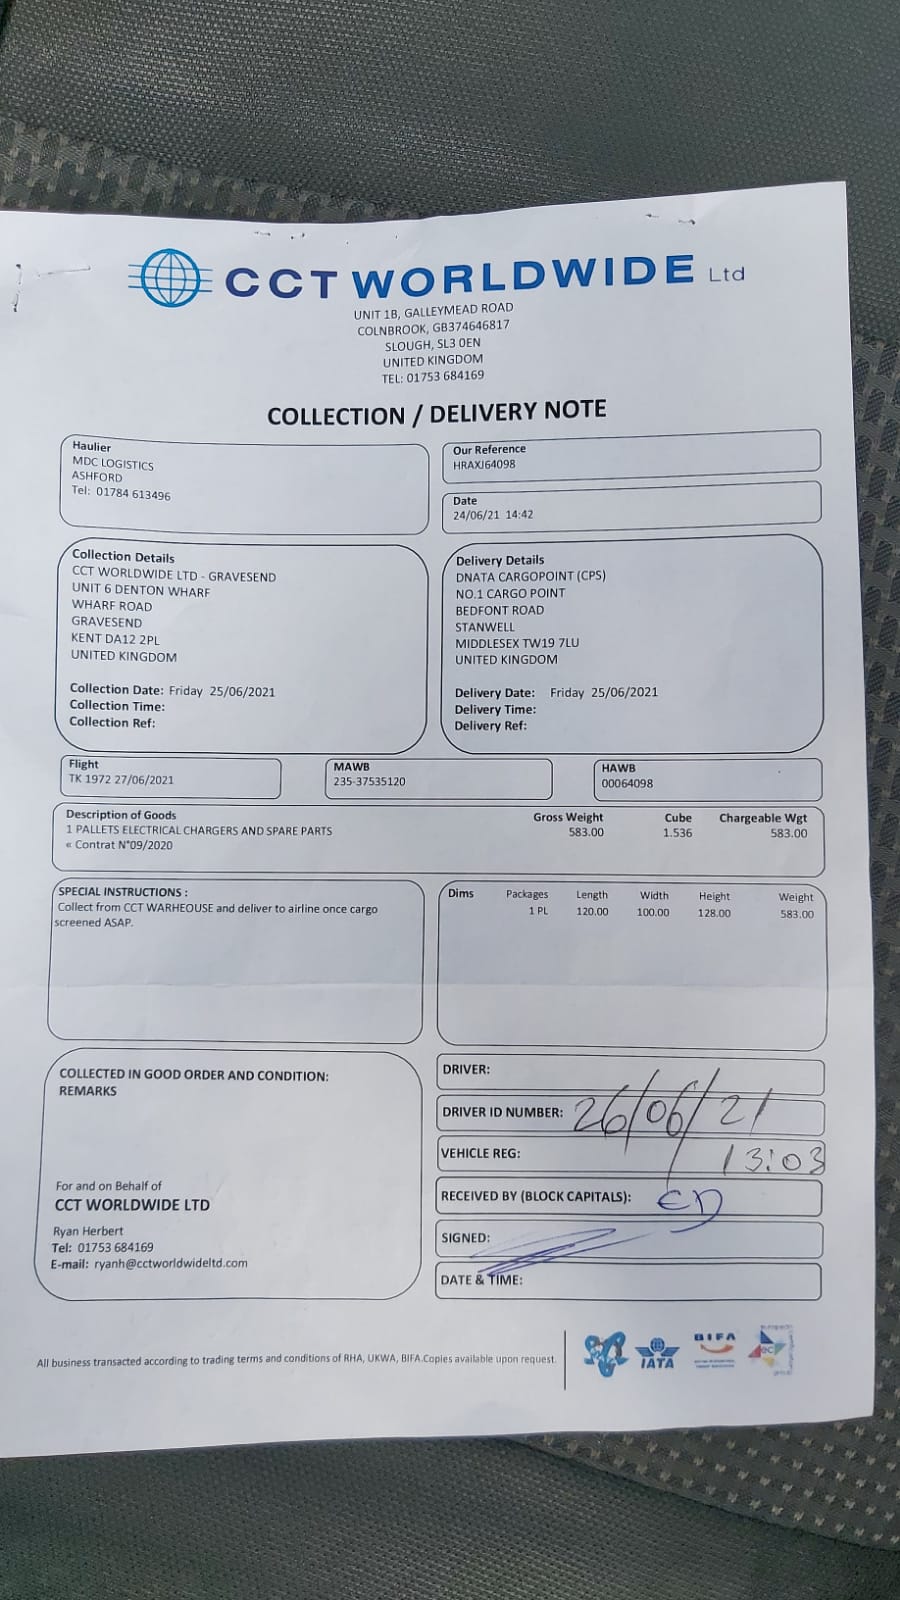 CCT WORLDWIDE Ltd
UNIT 1B, GALLEYMEAD ROAD
COLNBROOK, GB374646817
SLOUGH, SL3 0EN
UNITED KINGDOM
TEL: 01753 684169
COLLECTION / DELIVERY NOTE
Haulier
MDC LOGISTICS
ASHFORD
Tel: 01784 613496
Our Reference
HRAXJ64098
Date
24/06/21 14:42
Collection Details
CCT WORLDWIDE LTD - GRAVESEND
UNIT 6 DENTON WHARF
WHARF ROAD
GRAVESEND
KENT DA12 2PL
UNITED KINGDOM
Collection Date: Friday 25/06/2021
Collection Time:
Collection Ref:
Delivery Details
DNATA CARGOPOINT (CPS)
NO.1 CARGO POINT
BEDFONT ROAD
STANWELL
MIDDLESEX TW19 7LU
UNITED KINGDOM
Delivery Date: Friday 25/06/2021
Delivery Time:
Delivery Ref:
Flight
TK 1972 27/06/2021
MAWB
235-37535120
HAWB
00064098
Description of Goods Gross Weight Cube Chargeable Wgt
1 PALLETS ELECTRICAL CHARGERS AND SPARE PARTS 583.00 1.536 583.00
« Contrat N°09/2020
SPECIAL INSTRUCTIONS :
Collect from CCT WARHEOUSE and deliver to airline once cargo
screened ASAP.
Dims Packages Length Width Height Weight
1 PL 120.00 100.00 128.00 583.00
COLLECTED IN GOOD ORDER AND CONDITION:
REMARKS
For and on Behalf of
CCT WORLDWIDE LTD
Ryan Herbert
Tel: 01753 684169
E-mail: ryanh@cctworldwideltd.com
DRIVER:
DRIVER ID NUMBER: 26/06/21
VEHICLE REG: 13:03
RECEIVED BY (BLOCK CAPITALS): ED
SIGNED:
DATE & TIME:
All business transacted according to trading terms and conditions of RHA, UKWA, BIFA.Copies available upon request.
IATA
BIFA
ec